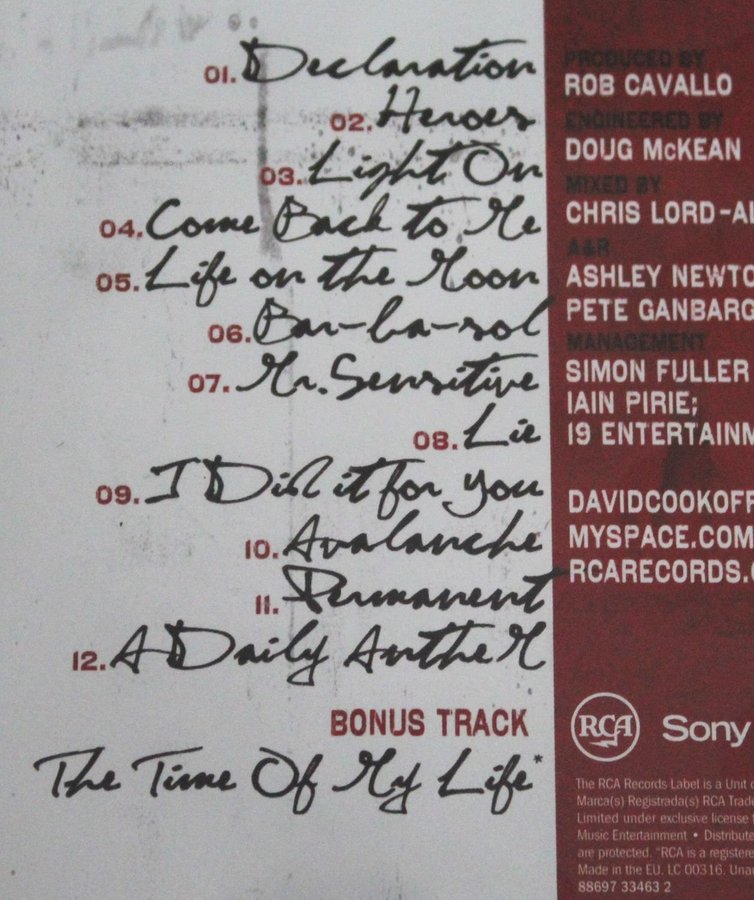 01. Declaration
02. Heroes
03. Light On
04. Come Back to Me
05. Life on the Moon
06. Bar-ba-sol
07. Mr. Sensitive
08. Lie
09. I Did it for you
10. Avalanche
11. Permanent
12. A Daily AntheM
BONUS TRACK
The Time Of My Life*
PRODUCED BY
ROB CAVALLO
ENGINEERED BY
DOUG McKEAN
MIXED BY
CHRIS LORD-AL
A&R
ASHLEY NEWTO
PETE GANBARG
MANAGEMENT
SIMON FULLER
IAIN PIRIE;
19 ENTERTAINM
DAVIDCOOKOFF
MYSPACE.COM
RCARECORDS.
RCA Sony
The RCA Records Label is a Unit
Marca(s) Registrada(s) RCA Trade
Limited under exclusive license
Music Entertainment • Distribute
are protected. "RCA is a registere
Made in the EU. LC 00316. Unau
88697 33463 2